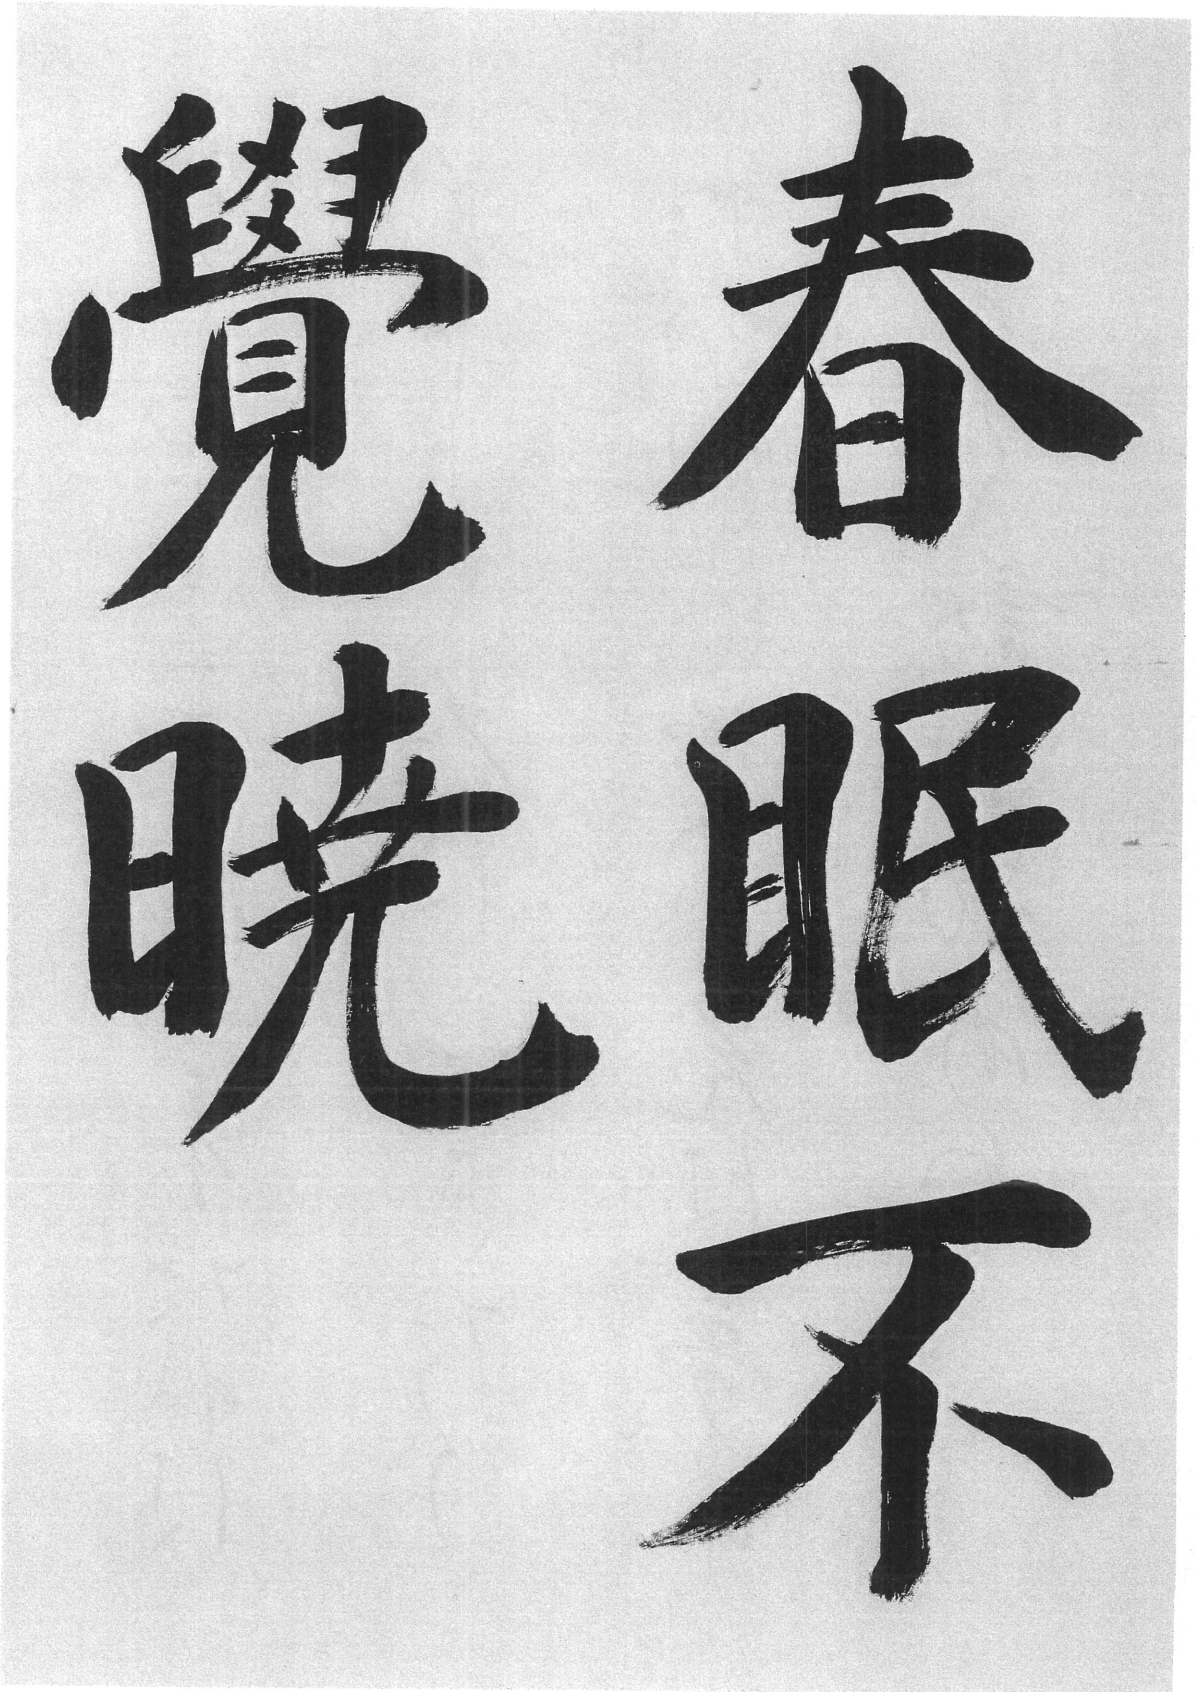 春眠不
覺暁